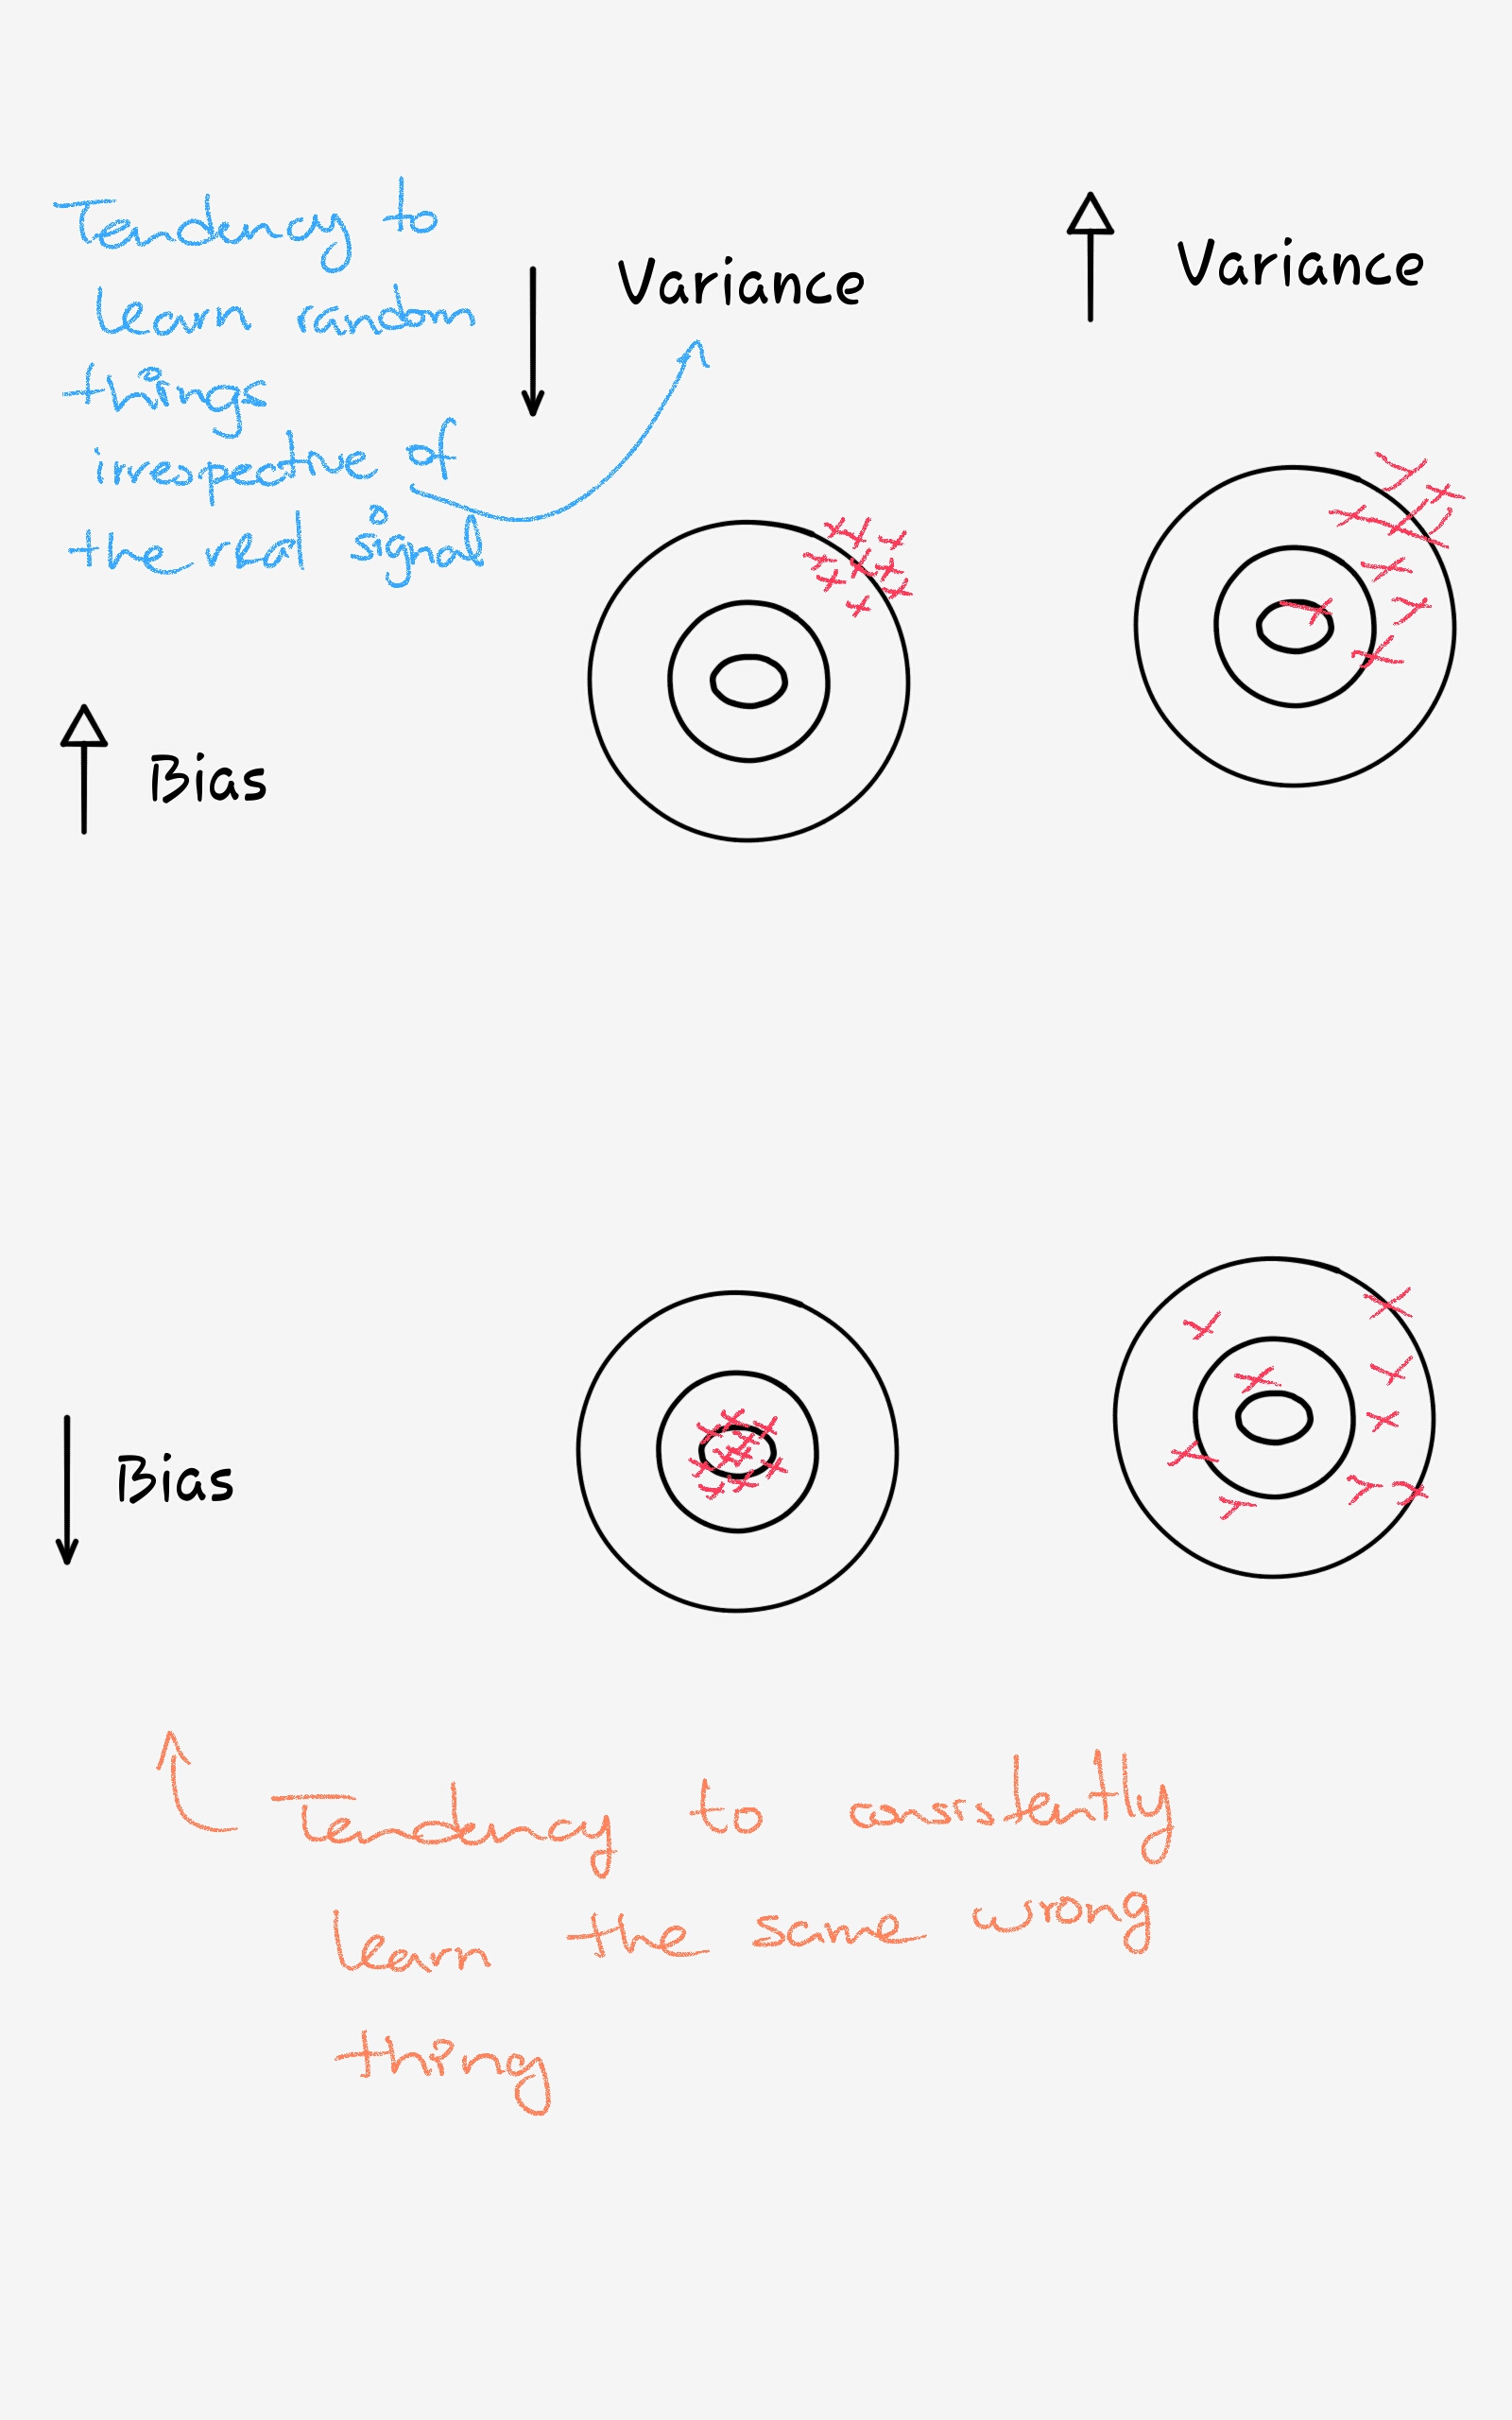 Tendency to
learn random
things
irrespective of
the real signal
Variance
Variance
Bias
Bias
Tendency to consistently
learn the same wrong
thing